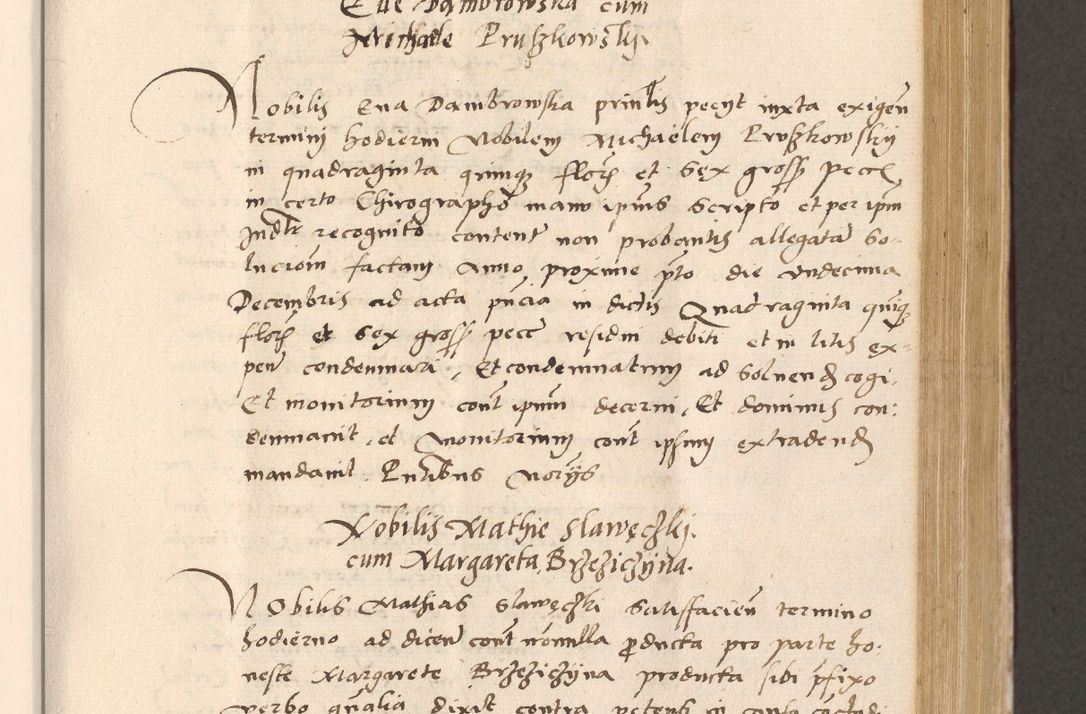 Eve Dambrowska cum
Michaele Pruszkowskj.
Nobilis Eva Dambrowska prīntis petijt iuxta exigen̄
terminj hodiernj Nobilem Michaelem Pruszkowskij
in quadraginta quinqȝ florȝ et sex gross pecc̄
in certo Chirographo manu ip̄ius scripto et per ip̄m
Judr̄ recognito content̄ non probantis allegatā so-
lucion̄ factam Anno proxime p̄to die vndecima
Decembris ad acta p̄ncia in dictis Quadraginta quīqȝ
florȝ et sex gross pecc̄ residui debiti et in litis ex-
pen̄ condemnari, Et condemnatum ad soluend cogi,
Et monitorium cont̄ ipsum decerni, Et dominus con:
demnauit, et Monitorium cont̄ ipsum extradend
mandauit Pn̄tibus Norijs
Nobilis Mathie Slawęczkj.
cum Margareta Brzeziczyna.
Nobilis Mathias Slawęczki satisfacien̄ termino
hodierno ad dicen̄ cont̄ nōnulla p̄ducta pro parte ho:
neste Margarete Brzeziczyna producta sibi p̄fixo
verbo q̄nalia dixit contra petent̄ in causa